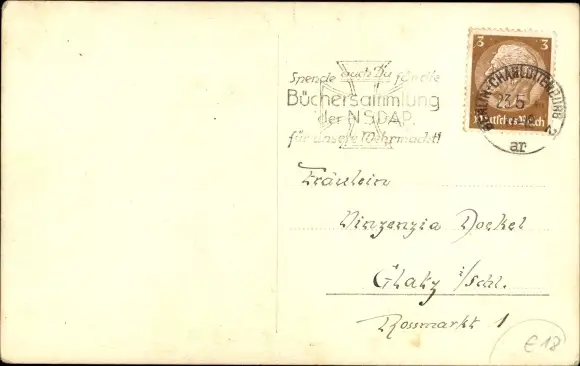 Spende auch Du für die
Büchersammlung
der NSDAP.
für unsere Wehrmacht!
3 3
Deutsches Reich
BERLIN-CHARLOTTENBURG 2
23.5
ar
Fräulein
Vinzenzia Dorkel
Glatz i/Schl.
Rossmarkt 1
€18